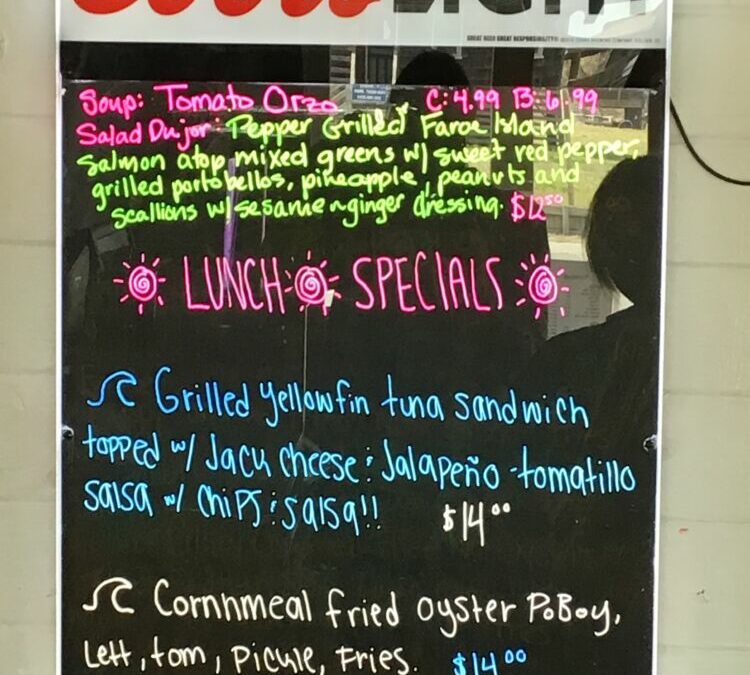 Soup: Tomato Orzo C: 4.99 B: 6.99
Salad Dujor: Pepper Grilled Faroe Island
Salmon atop mixed greens w/ sweet red pepper,
grilled portobellos, pineapple, peanuts and
scallions w/ sesame-ginger dressing. $12.50
LUNCH SPECIALS
Grilled yellowfin tuna sandwich
topped w/ Jack cheese & Jalapeño-tomatillo
salsa w/ chips & salsa!!
$14.00
Cornhmeal fried oyster PoBoy,
Lett, tom, Pickle, Fries. $14.00